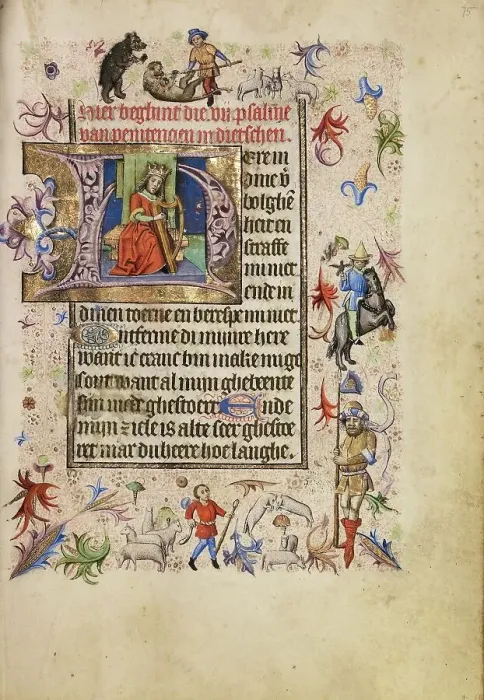 75
Hier beghint die vij psalme
van penitencien in dietschen.
Here in
dinre v̄
bolghē
heit en
straffe
mi niet
ende in
dinen toerne en berespe mi niet
Ontferme di mijnre here
want ic cranc bin make mi ge
sont want al mijn ghebeente
sijn mede ghestoert Ende
mijn ziele is alte seer ghestoe
ret mar du heere hoe langhe.